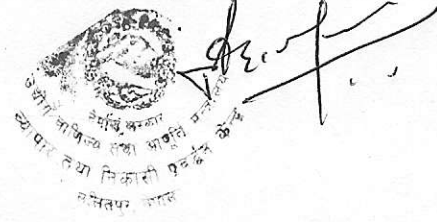 नेपाल सरकार
उद्योग वाणिज्य तथा आपूर्ति मन्त्रालय
व्यापार तथा निकासी प्रवर्द्धन केन्द्र
ललितपुर, नेपाल